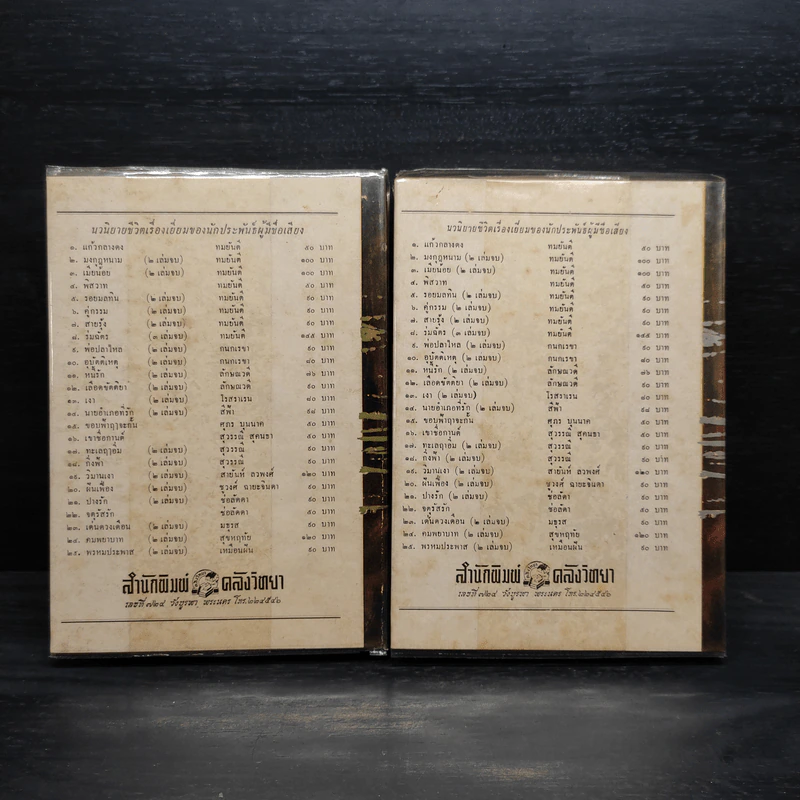 นวนิยายชีวิตเรื่องเยี่ยมของนักประพันธ์ผู้มีชื่อเสียง
๑. แก้วกลางดง ทมยันตี ๕๐ บาท
๒. มงกุฎหนาม (๒ เล่มจบ) ทมยันตี ๑๐๐ บาท
๓. เมียน้อย (๒ เล่มจบ) ทมยันตี ๑๐๐ บาท
๔. พิสวาท ทมยันตี ๕๐ บาท
๕. รอยมลทิน (๒ เล่มจบ) ทมยันตี ๙๐ บาท
๖. คู่กรรม (๒ เล่มจบ) ทมยันตี ๙๐ บาท
๗. สายรุ้ง (๒ เล่มจบ) ทมยันตี ๙๐ บาท
๘. ร่มฉัตร (๓ เล่มจบ) ทมยันตี ๑๔๕ บาท
๙. พ่อปลาไหล (๒ เล่มจบ) กนกเรขา ๙๐ บาท
๑๐. อุบัติเหตุ (๒ เล่มจบ) กนกเรขา ๘๐ บาท
๑๑. หินรัก (๒ เล่มจบ) ลักษณวดี ๗๖ บาท
๑๒. เลือดขัตติยา (๒ เล่มจบ) ลักษณวดี ๙๐ บาท
๑๓. เงา (๒ เล่มจบ) โรสลาเรน ๘๐ บาท
๑๔. นายอำเภอที่รัก (๒ เล่มจบ) สีฟ้า ๙๘ บาท
๑๕. ขอบฟ้าฤาจะกั้น ศุภร บุนนาค ๕๐ บาท
๑๖. เขาชื่อกานต์ สุวรรณี สุคนธา ๕๐ บาท
๑๗. ทะเลฤาอิ่ม (๒ เล่มจบ) สุวรรณี ๙๐ บาท
๑๘. กิ่งฟ้า (๒ เล่มจบ) สุวรรณี ๙๐ บาท
๑๙. วิมานเงา (๒ เล่มจบ) สายันห์ ลวพงศ์ ๑๒๐ บาท
๒๐. ฝันเฟื่อง (๒ เล่มจบ) ชูวงศ์ ฉายะจินดา ๙๐ บาท
๒๑. ปางรัก (๒ เล่มจบ) ช่อลัดดา ๙๐ บาท
๒๒. จตุรัสรัก ช่อลัดดา ๕๐ บาท
๒๓. เด่นดวงเดือน (๒ เล่มจบ) มธุรส ๙๐ บาท
๒๔. คมพยาบาท (๒ เล่มจบ) สุขหฤทัย ๑๒๐ บาท
๒๕. พรหมประพาส (๒ เล่มจบ) เหมือนฝัน ๙๐ บาท
สำนักพิมพ์ คลังวิทยา
เลขที่ ๗๒๔ วังบูรพา พระนคร โทร. ๒๒๔๕๔๖
นวนิยายชีวิตเรื่องเยี่ยมของนักประพันธ์ผู้มีชื่อเสียง
๑. แก้วกลางดง ทมยันตี ๕๐ บาท
๒. มงกุฎหนาม (๒ เล่มจบ) ทมยันตี ๑๐๐ บาท
๓. เมียน้อย (๒ เล่มจบ) ทมยันตี ๑๐๐ บาท
๔. พิสวาท ทมยันตี ๕๐ บาท
๕. รอยมลทิน (๒ เล่มจบ) ทมยันตี ๙๐ บาท
๖. คู่กรรม (๒ เล่มจบ) ทมยันตี ๙๐ บาท
๗. สายรุ้ง (๒ เล่มจบ) ทมยันตี ๙๐ บาท
๘. ร่มฉัตร (๓ เล่มจบ) ทมยันตี ๑๔๕ บาท
๙. พ่อปลาไหล (๒ เล่มจบ) กนกเรขา ๙๐ บาท
๑๐. อุบัติเหตุ (๒ เล่มจบ) กนกเรขา ๘๐ บาท
๑๑. หินรัก (๒ เล่มจบ) ลักษณวดี ๗๖ บาท
๑๒. เลือดขัตติยา (๒ เล่มจบ) ลักษณวดี ๙๐ บาท
๑๓. เงา (๒ เล่มจบ) โรสลาเรน ๘๐ บาท
๑๔. นายอำเภอที่รัก (๒ เล่มจบ) สีฟ้า ๙๘ บาท
๑๕. ขอบฟ้าฤาจะกั้น ศุภร บุนนาค ๕๐ บาท
๑๖. เขาชื่อกานต์ สุวรรณี สุคนธา ๕๐ บาท
๑๗. ทะเลฤาอิ่ม (๒ เล่มจบ) สุวรรณี ๙๐ บาท
๑๘. กิ่งฟ้า (๒ เล่มจบ) สุวรรณี ๙๐ บาท
๑๙. วิมานเงา (๒ เล่มจบ) สายันห์ ลวพงศ์ ๑๒๐ บาท
๒๐. ฝันเฟื่อง (๒ เล่มจบ) ชูวงศ์ ฉายะจินดา ๙๐ บาท
๒๑. ปางรัก (๒ เล่มจบ) ช่อลัดดา ๙๐ บาท
๒๒. จตุรัสรัก ช่อลัดดา ๕๐ บาท
๒๓. เด่นดวงเดือน (๒ เล่มจบ) มธุรส ๙๐ บาท
๒๔. คมพยาบาท (๒ เล่มจบ) สุขหฤทัย ๑๒๐ บาท
๒๕. พรหมประพาส (๒ เล่มจบ) เหมือนฝัน ๙๐ บาท
สำนักพิมพ์ คลังวิทยา
เลขที่ ๗๒๔ วังบูรพา พระนคร โทร. ๒๒๔๕๔๖